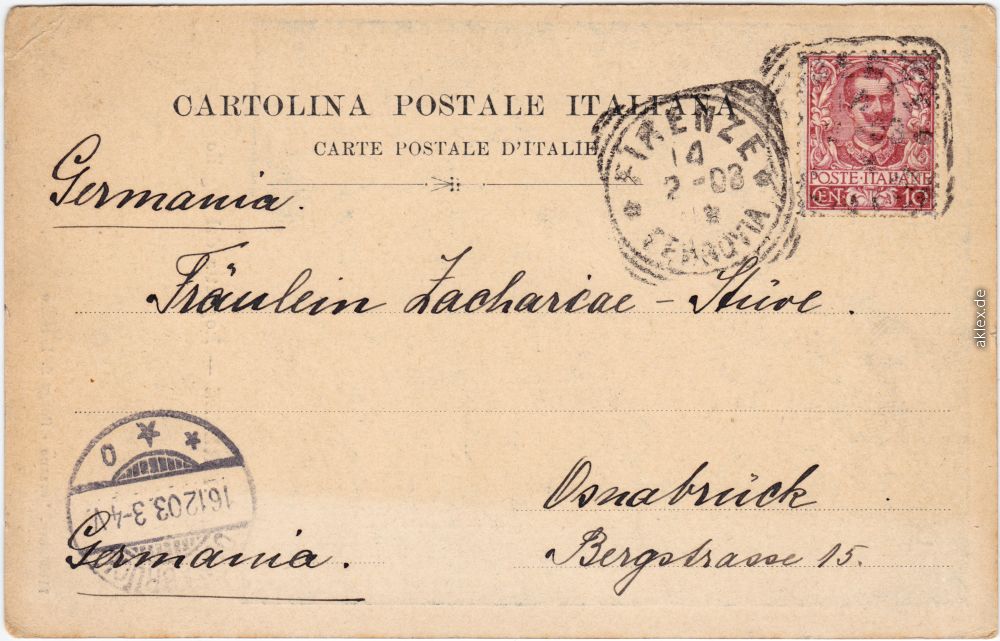 CARTOLINA POSTALE ITALIANA
CARTE POSTALE D'ITALIE
FIRENZE
14
2-03
FERROVIA
POSTE·ITALIANE
CEN. 10
Germania.
Fräulein Zachariae-Stüve.
Osnabrück
Bergstrasse 15.
16.12.03.3-4V.
Germania.
aklex.de